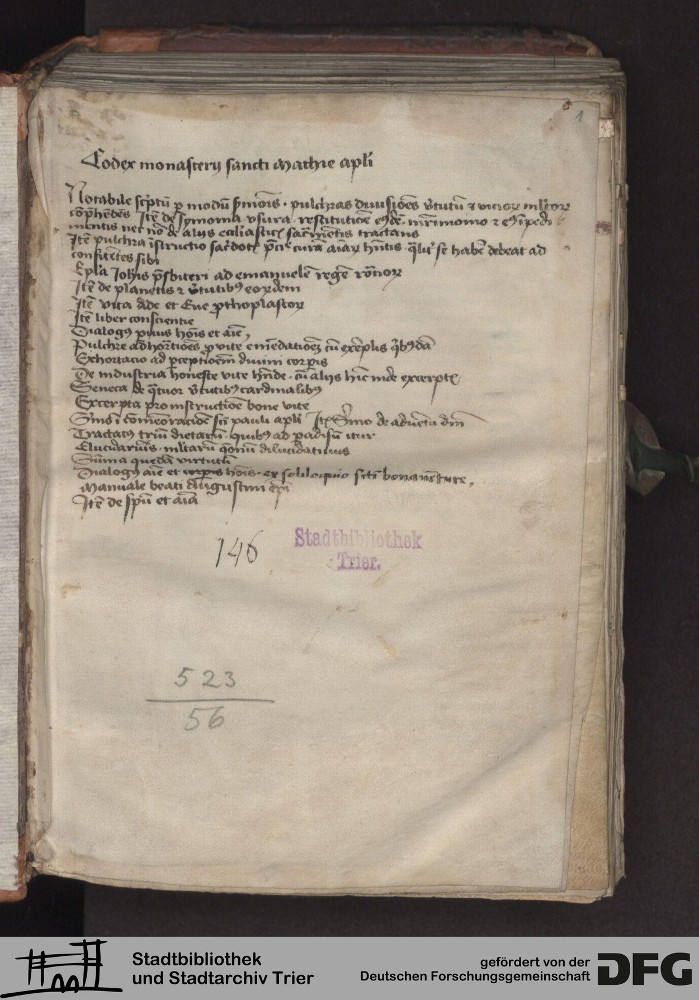 1
Codex monasterij sancti Mathie apli
Notabile scptu p modu smois. pulchras diuisiões vtutu et vicior mltor
cophedes Ite de symonia vsura restitutioe eisde mrimonio et eis ipedi
mentis nec no de alijs ecliasticis sacmetis tractans
Ite pulchra istructio sacdotu curã aiar hntis qlr se habe debeat ad
confitetes sibi
Epla Johis psbiteri ad emanuele rege romor
Ite de planetis et vtutibus eordem
Ite vita Ade et Eue pthoplastor
Ite liber conscientie
Dialogus prius hois et aie,
Pulchre adhortiões p vite emedatioe cu exeplis qbusda
Exhortacio ad pceptioem diuini corpis
De industria honeste vite hnde. cu alijs hic inde excerptis
Seneca de qtuor vtutibus cardinalibus
Excerpta pro instructioe bone vite
Smo i comeoracioe sci pauli apli Ite Smo de aduetu dni
Tractatus triu dietaru. quibus ad padisu itur
Elucidarius. mltaru qonu dilucidatiuus
Suma queda virtutu
Dialogus aie et corpis hois. ex soliloquio scti bonauenture,
Manuale beati Augustini epi
Ite de spu et aia
146
Stadtbibliothek
Trier.
523
56
Stadtbibliothek
und Stadtarchiv Trier
gefördert von der
Deutschen Forschungsgemeinschaft
DFG